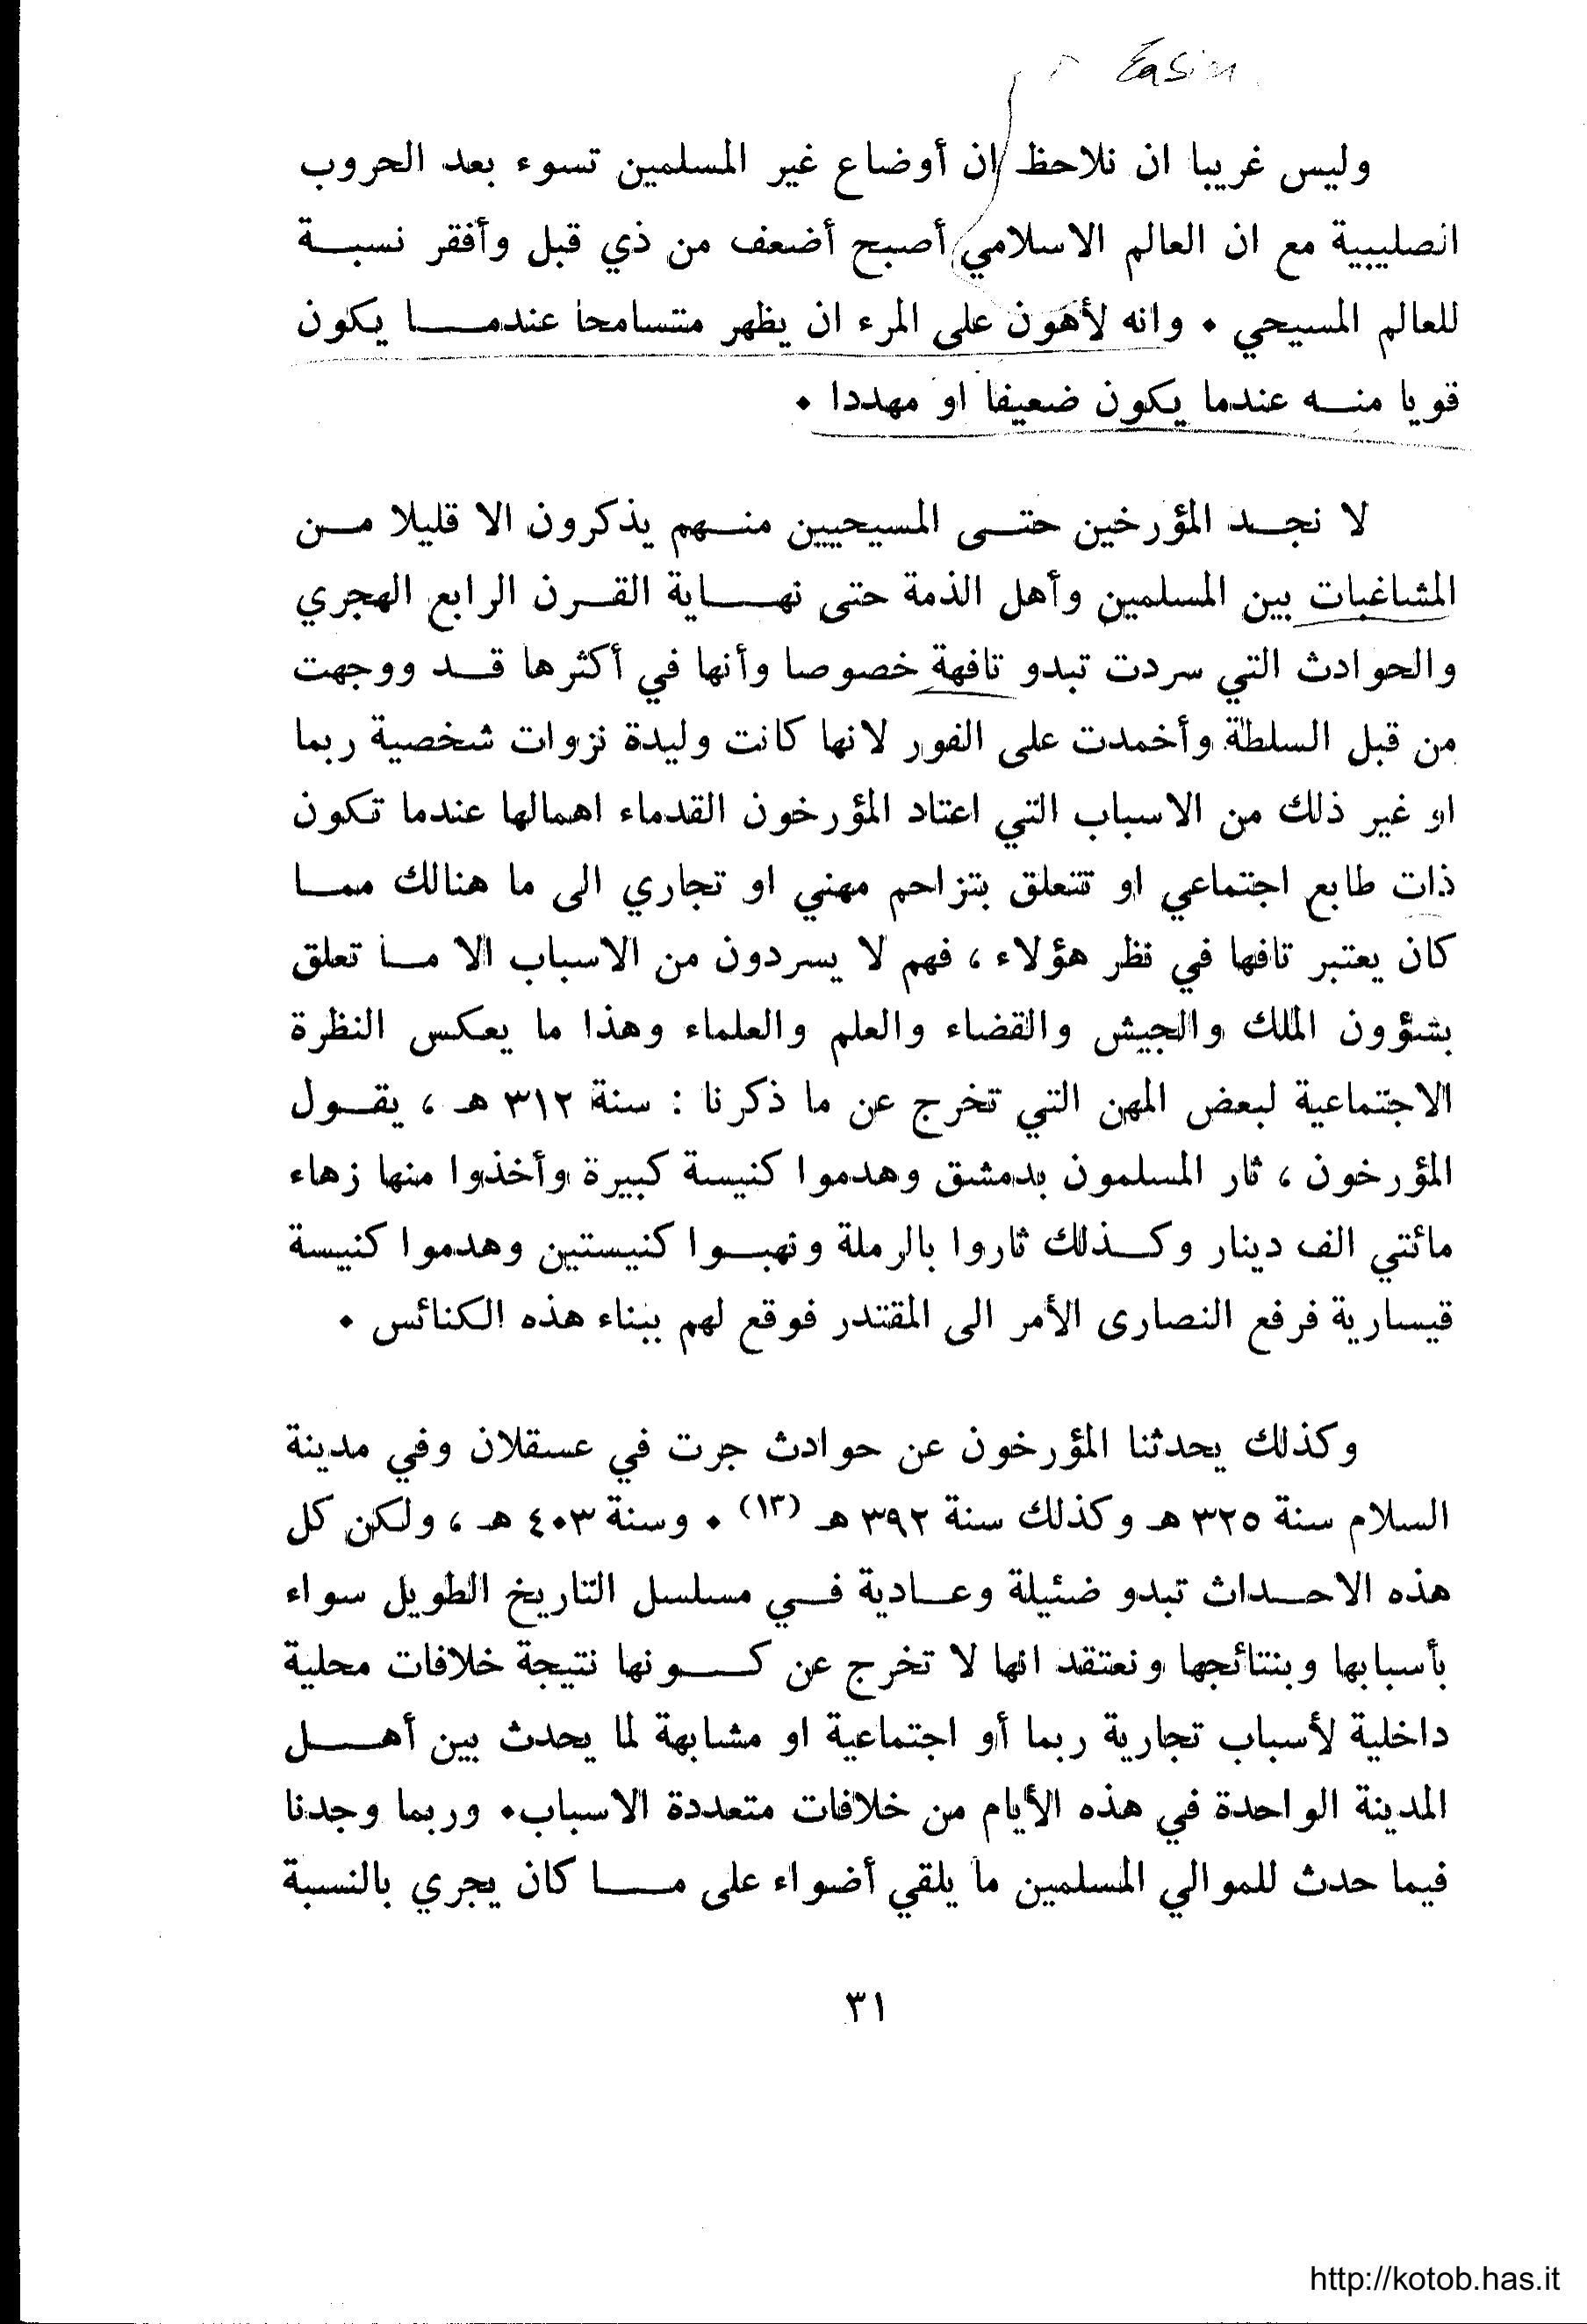 Easier
وليس غريبا ان نلاحظ ان أوضاع غير المسلمين تسوء بعد الحروب
الصليبية مع ان العالم الاسلامي أصبح أضعف من ذي قبل وأفقر نسبة
للعالم المسيحي ٠ وانه لأهون على المرء ان يظهر متسامحا عندما يكون
قويا منه عندما يكون ضعيفا او مهددا ٠
لا نجد المؤرخين حتى المسيحيين منهم يذكرون الا قليلا من
المشاغبات بين المسلمين وأهل الذمة حتى نهاية القرن الرابع الهجري
والحوادث التي سردت تبدو تافهة خصوصا وأنها في أكثرها قد ووجهت
من قبل السلطة وأخمدت على الفور لانها كانت وليدة نزوات شخصية ربما
او غير ذلك من الاسباب التي اعتاد المؤرخون القدماء اهمالها عندما تكون
ذات طابع اجتماعي او تتعلق بتزاحم مهني او تجاري الى ما هنالك مما
كان يعتبر تافها في نظر هؤلاء ، فهم لا يسردون من الاسباب الا ما تعلق
بشؤون الملك والجيش والقضاء والعلم والعلماء وهذا ما يعكس النظرة
الاجتماعية لبعض المهن التي تخرج عن ما ذكرنا : سنة ٣١٢ هـ ، يقول
المؤرخون ، ثار المسلمون بدمشق وهدموا كنيسة كبيرة وأخذوا منها زهاء
مائتي الف دينار وكذلك ثاروا بالرملة ونهبوا كنيستين وهدموا كنيسة
قيسارية فرفع النصارى الأمر الى المقتدر فوقع لهم ببناء هذه الكنائس ٠
وكذلك يحدثنا المؤرخون عن حوادث جرت في عسقلان وفي مدينة
السلام سنة ٣٢٥ هـ وكذلك سنة ٣٩٢ هـ (١٣) ٠ وسنة ٤٠٣ هـ ، ولكن كل
هذه الاحداث تبدو ضئيلة وعادية في مسلسل التاريخ الطويل سواء
بأسبابها وبنتائجها ونعتقد انها لا تخرج عن كونها نتيجة خلافات محلية
داخلية لأسباب تجارية ربما أو اجتماعية او مشابهة لما يحدث بين أهل
المدينة الواحدة في هذه الأيام من خلافات متعددة الاسباب٠ وربما وجدنا
فيما حدث للموالي المسلمين ما يلقي أضواء على ما كان يجري بالنسبة
٣١
http://kotob.has.it